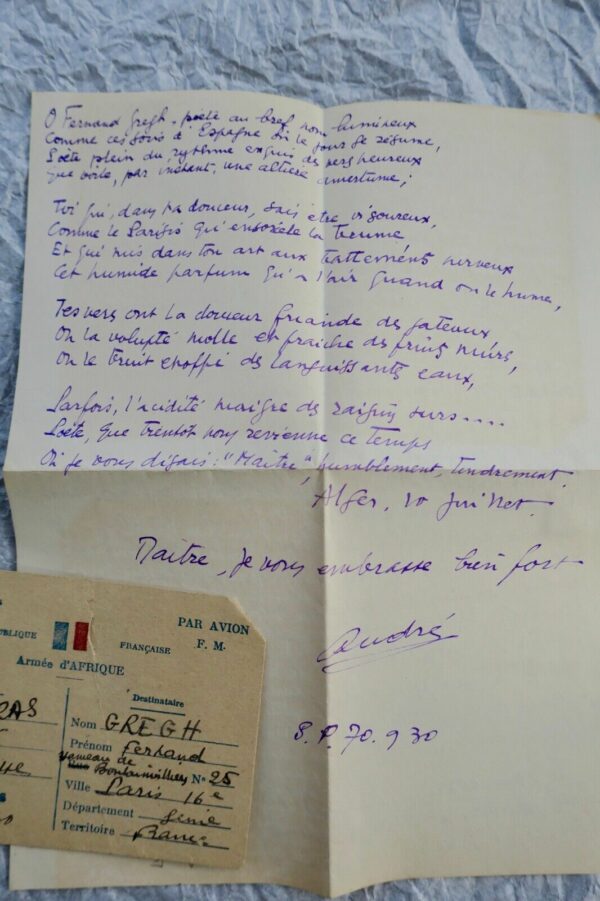 O Fernand Gregh, poète au bref nom lumineux
Comme ces soirs d'Espagne où le jour se résume,
Poète plein du rythme exquis des vers heureux
Que voile, par instant, une altière amertume;
Toi qui, dans ta douceur, sais être vigoureux,
Comme le Parsifal qui ensorcèle la
Et qui mis dans ton art aux nerveux
Cet humide parfum qu'a l'air quand on le hume,
Tes vers ont la douceur friande des gateaux
Ou la volupté molle et fraîche des fruits mûrs,
Ou le bruit étoffé des languissantes eaux,
Parfois, l'acidité maigre des raisins surs....
Poète, que bientot nous revienne ce temps
Où je vous disais: "Maître", humblement, tendrement.
Alger, 10 juillet.
Maître, je vous embrasse bien fort
André
S.P. 70.930
PUBLIQUE FRANÇAISE
PAR AVION
F. M.
Armée d'AFRIQUE
Destinataire
Nom GREGH
Prénom Fernand
Hameau de
Boulainvilliers N° 25
Ville Paris 16e
Département Seine
Territoire France